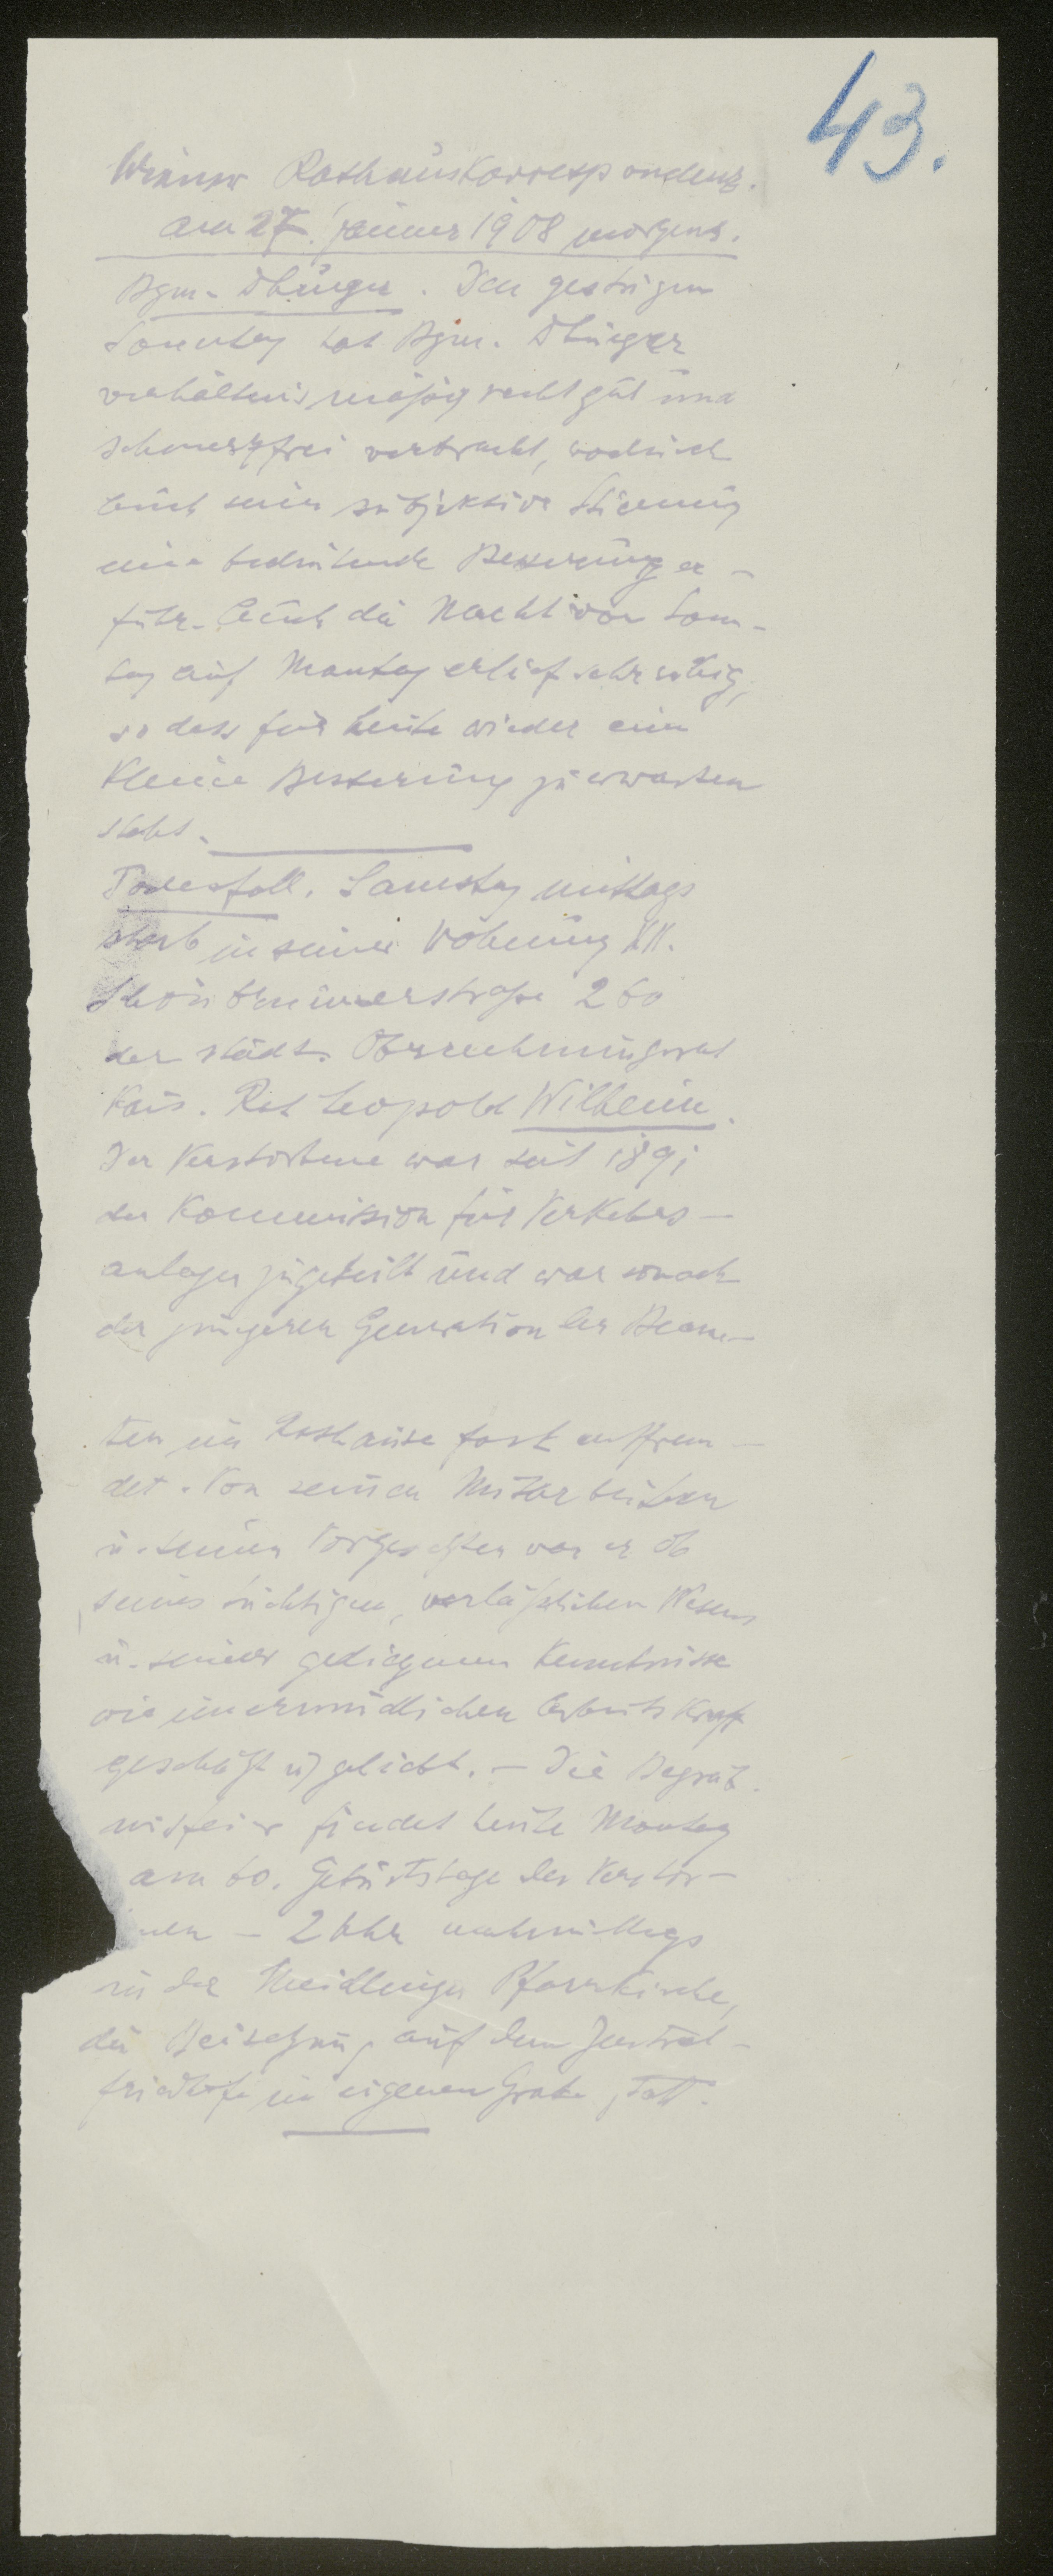 43.
Wiener Rathauskorrespondenz.
am 27. Jänner 1908 morgens.
Bgm. Dr. Lueger. Den gestrigen
Sonntag hat Bgm. Dr. Lueger
verhältnismäßig recht gut und
schmerzfrei verbracht, wodurch
auch seine subjektive Stimmung
eine bedeutende Besserung er-
fuhr. Auch die Nacht von Sonn-
tag auf Montag verlief sehr ruhig,
so dass für heute wieder eine
kleine Besserung zu erwarten
steht.
Todesfall. Samstag mittags
starb in seiner Wohnung XII.
Schönbrunnerstraße 260
der städt. Oberrechnungsrat
Kais. Rat Leopold Wilhelm.
Der Verstorbene war seit 1891
der Kommission für Verkehrs-
anlagen zugeteilt und war sonach
der jüngeren Generation der Beam-
ten im Rathause fast entfrem-
det. Von seinen Mitarbeitern
u. seinen Vorgesetzten war er ob
seines tüchtigen, verläßlichen Wesens
u. seiner gediegenen Kenntnisse
wie unermüdlichen Arbeitskraft
geschätzt u. geliebt. - Die Begräb-
nisfeier findet heute Montag
am 60. Geburtstage des Verstor-
nen - 2 Uhr nachmittags
in der Meidlinger Pfarrkirche,
die Beisetzung auf dem Zentral-
friedhofe im eigenen Grabe statt.